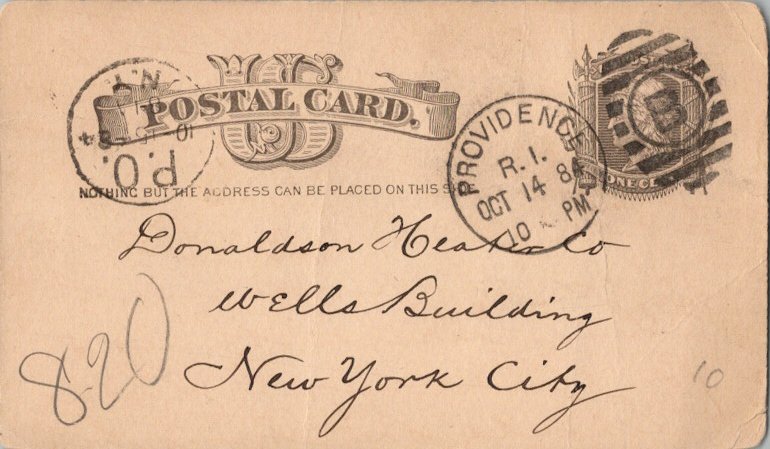 US
POSTAL CARD.
NOTHING BUT THE ADDRESS CAN BE PLACED ON THIS
N.Y.
P.O.
PROVIDENCE
R.I.
OCT 14 84
10 PM
B
U.S.
ONE
Donaldson Heater Co
Wells Building
New York City
8-20
10